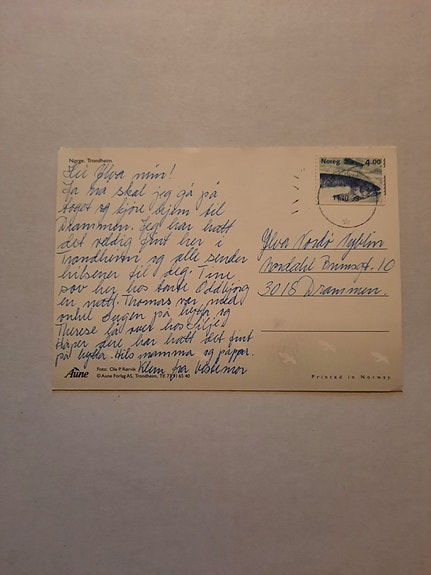 Norge. Trondheim.
Hei Ylva min!
Ja nå skal jeg gå på
toget og kjøre hjem til
Drammen. Jeg har hatt
det veldig fint her i
Trondheim og alle sender
hilsener til deg. Tine
sov her hos tante Oddbjørg
en natt. Thomas var med
onkel på hytta og
Therese lå over hos
Håper dere har hatt det fint
på hytta. Hils mamma og pappa.
Klem fra bestemor
Noreg 4.00
Ylva
Bruns gt. 10
3015 Drammen.
Aune
Foto: Ole P. Rørvik
© Aune Forlag AS, Trondheim, Tlf.
Printed in Norway